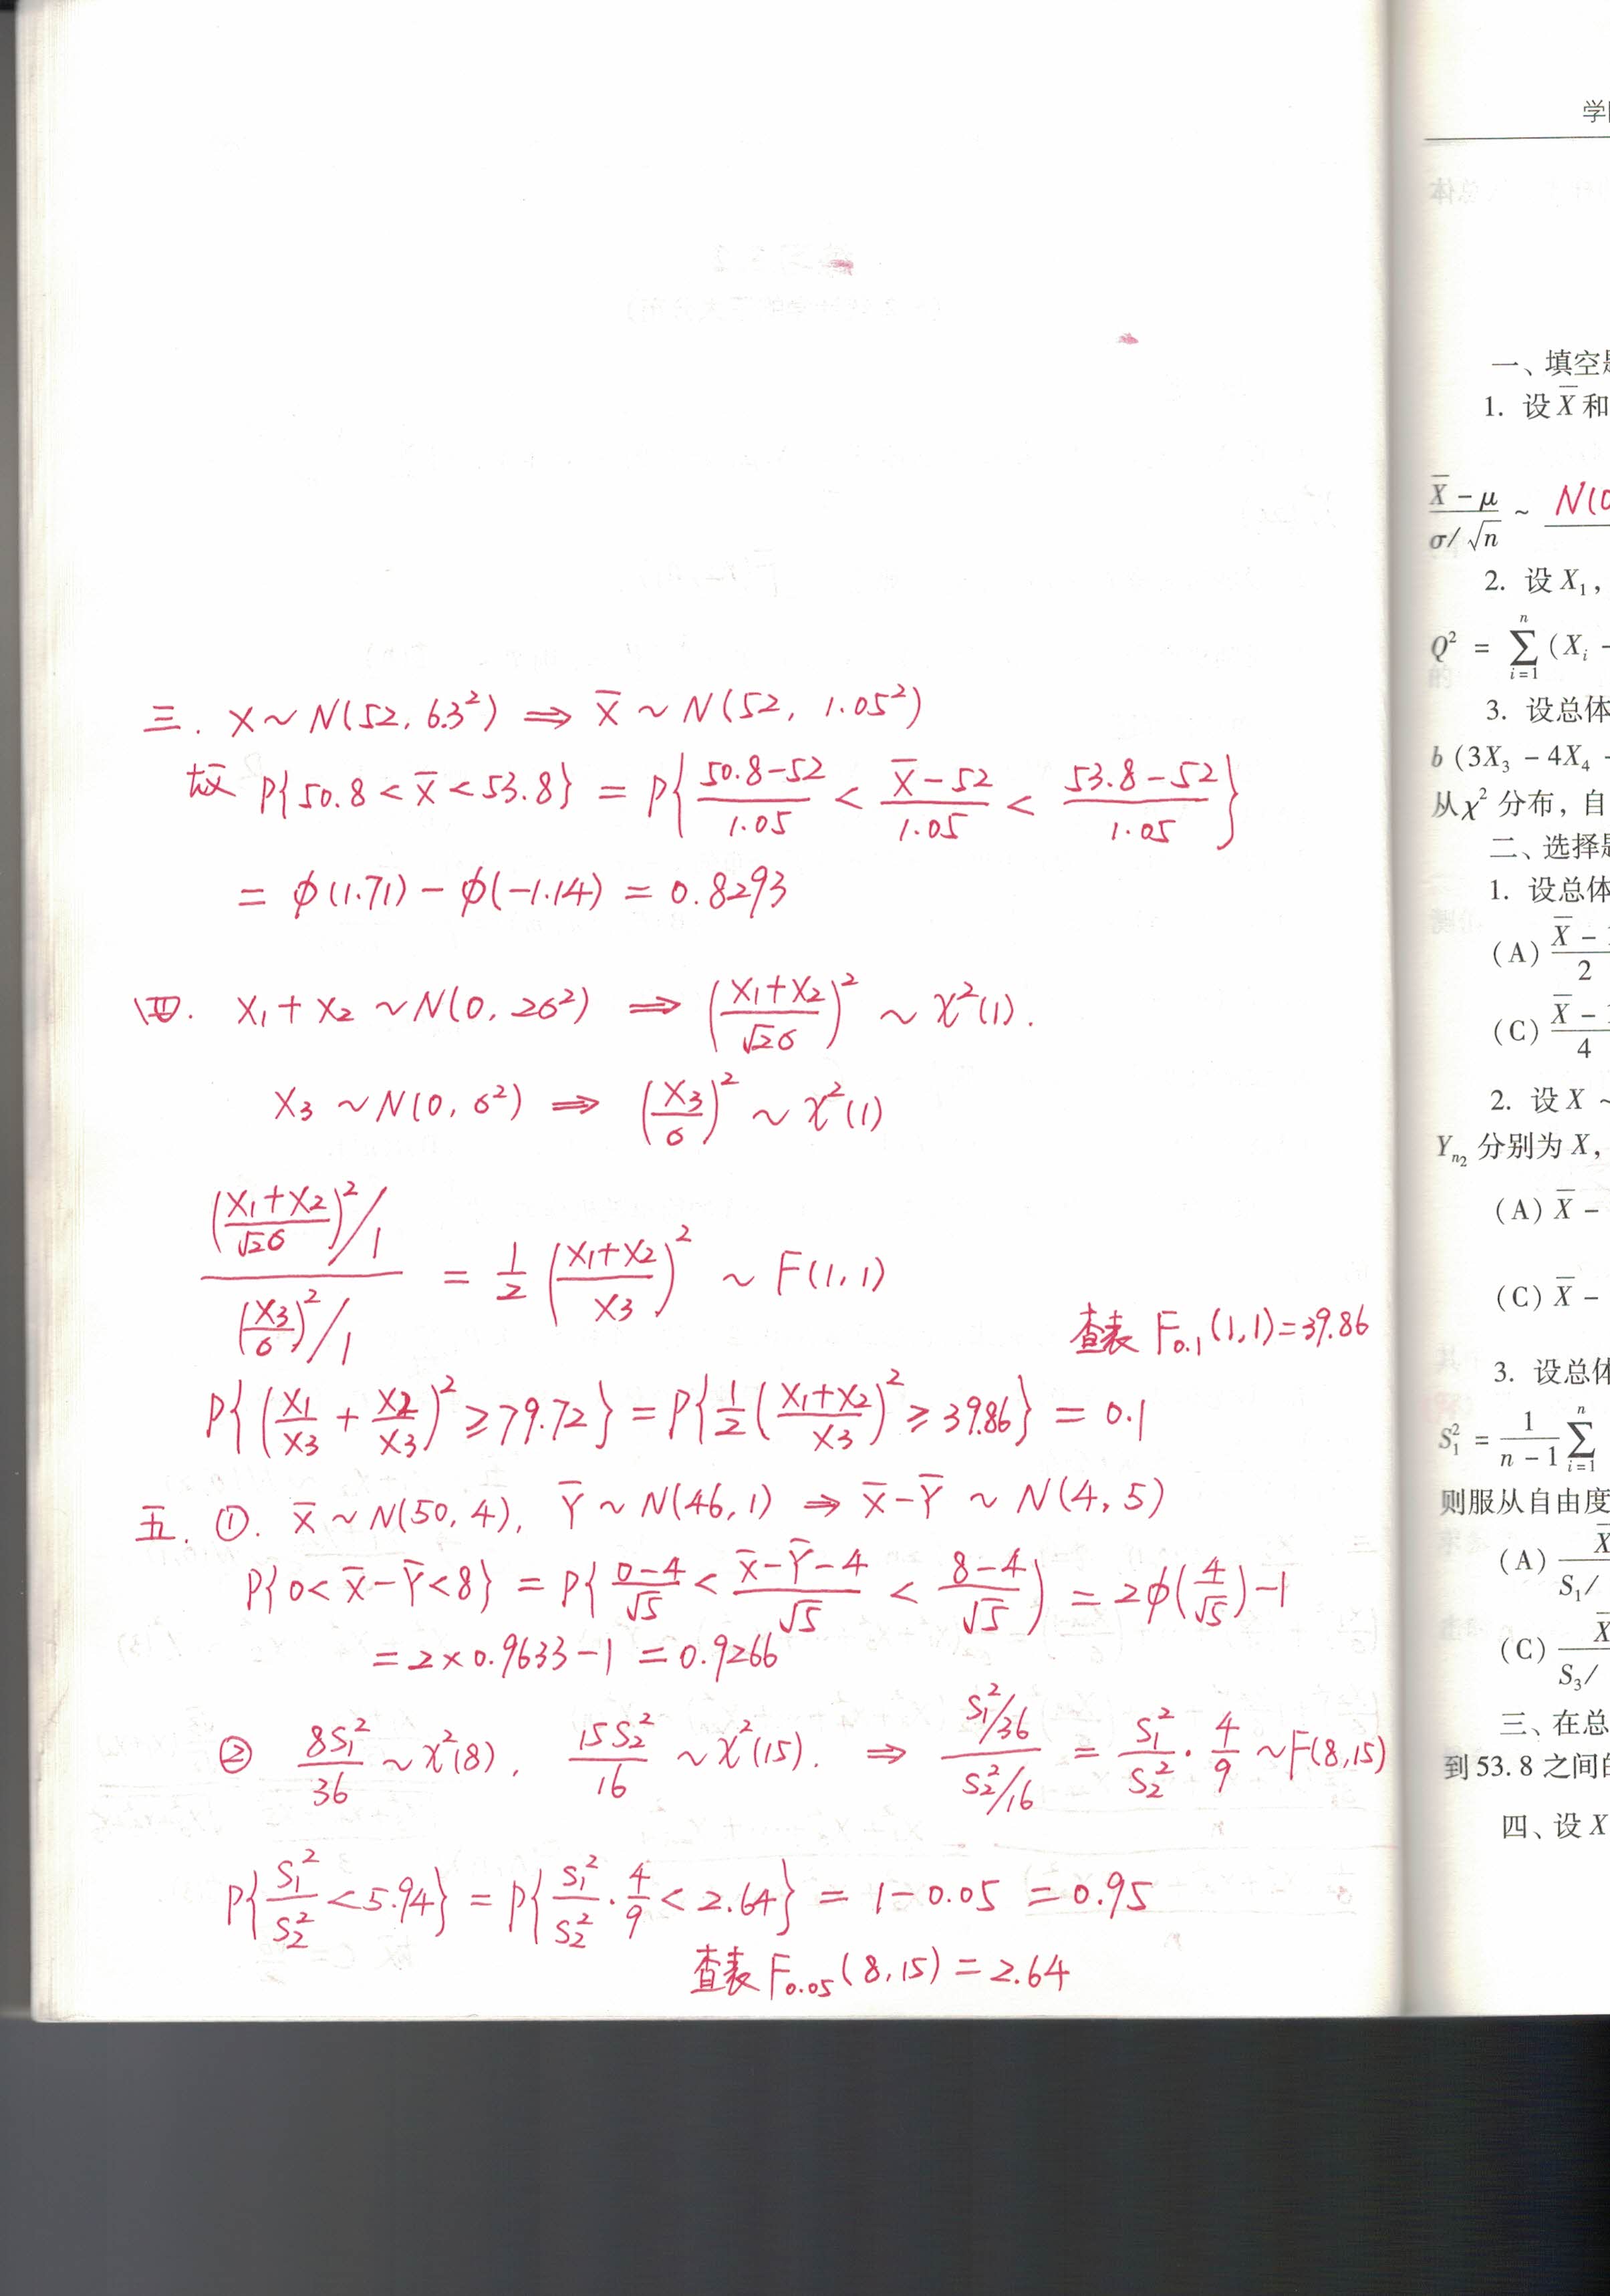 三. X ~ N(52, 6.3²) ⇒ X̄ ~ N(52, 1.05²)
故 P{50.8 < X̄ < 53.8} = P{(50.8-52)/1.05 < (X̄-52)/1.05 < (53.8-52)/1.05}
= φ(1.71) - φ(-1.14) = 0.8293
四. X₁ + X₂ ~ N(0, 2σ²) ⇒ ((X₁+X₂)/(√2σ))² ~ χ²(1).
X₃ ~ N(0, σ²) ⇒ (X₃/σ)² ~ χ²(1)
(((X₁+X₂)/(√2σ))²/1)/((X₃/σ)²/1) = 1/2 ((X₁+X₂)/X₃)² ~ F(1,1)
查表 F₀.₁(1,1)=39.86
P{(X₁/X₃ + X₂/X₃)² ≥ 79.72} = P{1/2((X₁+X₂)/X₃)² ≥ 39.86} = 0.1
五. ①. X̄ ~ N(50, 4), Ȳ ~ N(46, 1) ⇒ X̄-Ȳ ~ N(4, 5)
P{0 < X̄-Ȳ < 8} = P{(0-4)/√5 < (X̄-Ȳ-4)/√5 < (8-4)/√5) = 2φ(4/√5)-1
= 2×0.9633-1 = 0.9266
② 8S₁²/36 ~ χ²(8), 15S₂²/16 ~ χ²(15). ⇒ (S₁²/36)/(S₂²/16) = S₁²/S₂² · 4/9 ~ F(8,15)
P{S₁²/S₂² < 5.94} = P{S₁²/S₂² · 4/9 < 2.64} = 1-0.05 = 0.95
查表 F₀.₀₅(8,15) = 2.64
一、填空
1. 设 X̄ 和
(X̄ - μ)/(σ/√n) ~ N(0
2. 设 X₁,
Q² = ∑ᵢ₌₁ⁿ (Xᵢ -
3. 设总体
b (3X₃ - 4X₄
从 χ² 分布, 自
二、选择
1. 设总体
(A) (X̄ -)/2
(C) (X̄ -)/4
2. 设 X ~
Yₙ₂ 分别为 X,
(A) X̄ -
(C) X̄ -
3. 设总体
S₁² = 1/(n - 1) ∑ᵢ₌₁ⁿ
则服从自由度
(A) X̄/(S₁/
(C) X̄/(S₃/
三、在总
到 53.8 之间
四、设 X